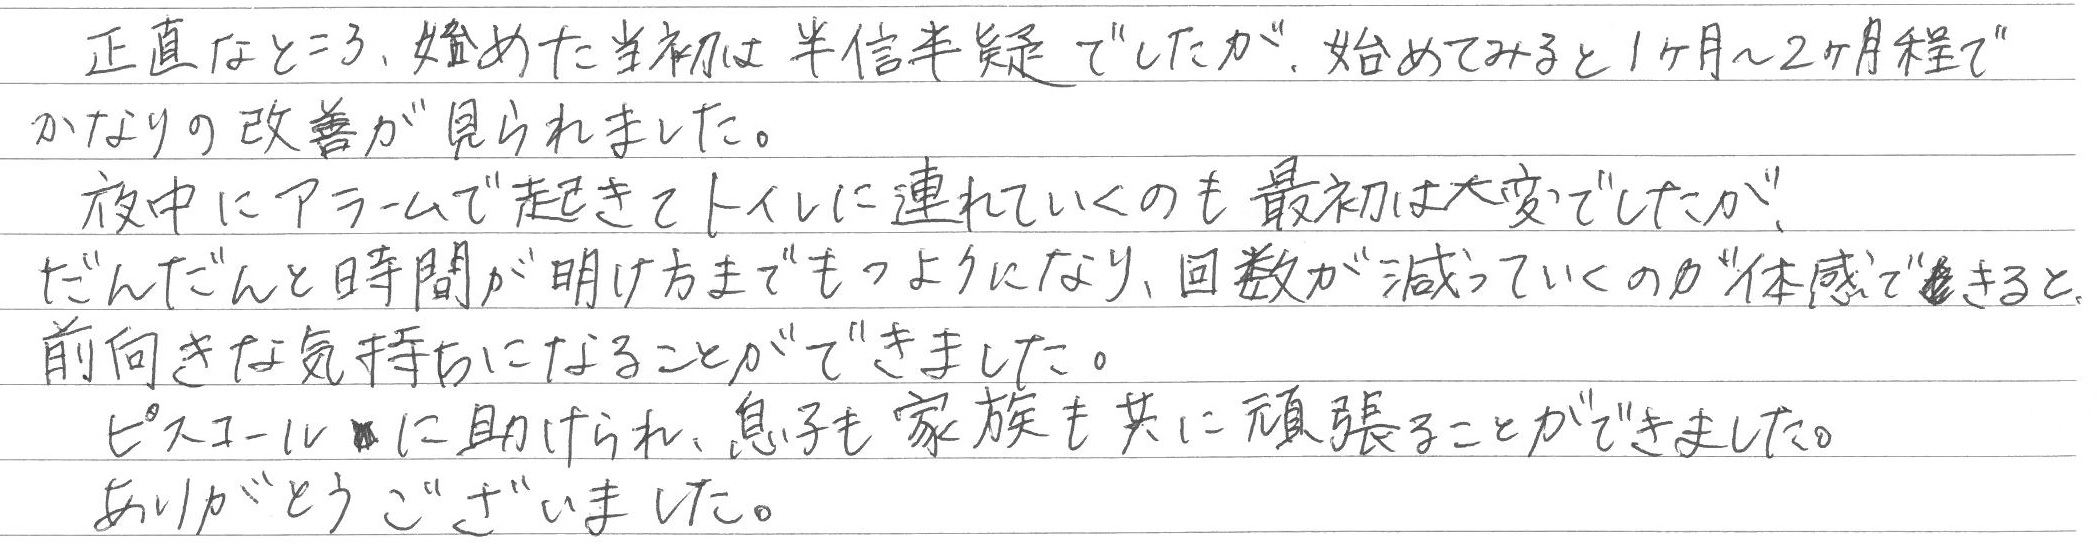 正直なところ、始めた当初は半信半疑でしたが、始めてみると1ヶ月～2ヶ月程で
かなりの改善が見られました。
夜中にアラームで起きてトイレに連れていくのも最初は大変でしたが、
だんだんと時間が明け方までもつようになり、回数が減っていくのが体感できると、
前向きな気持ちになることができました。
ピスコールに助けられ、息子も家族も共に頑張ることができました。
ありがとうございました。